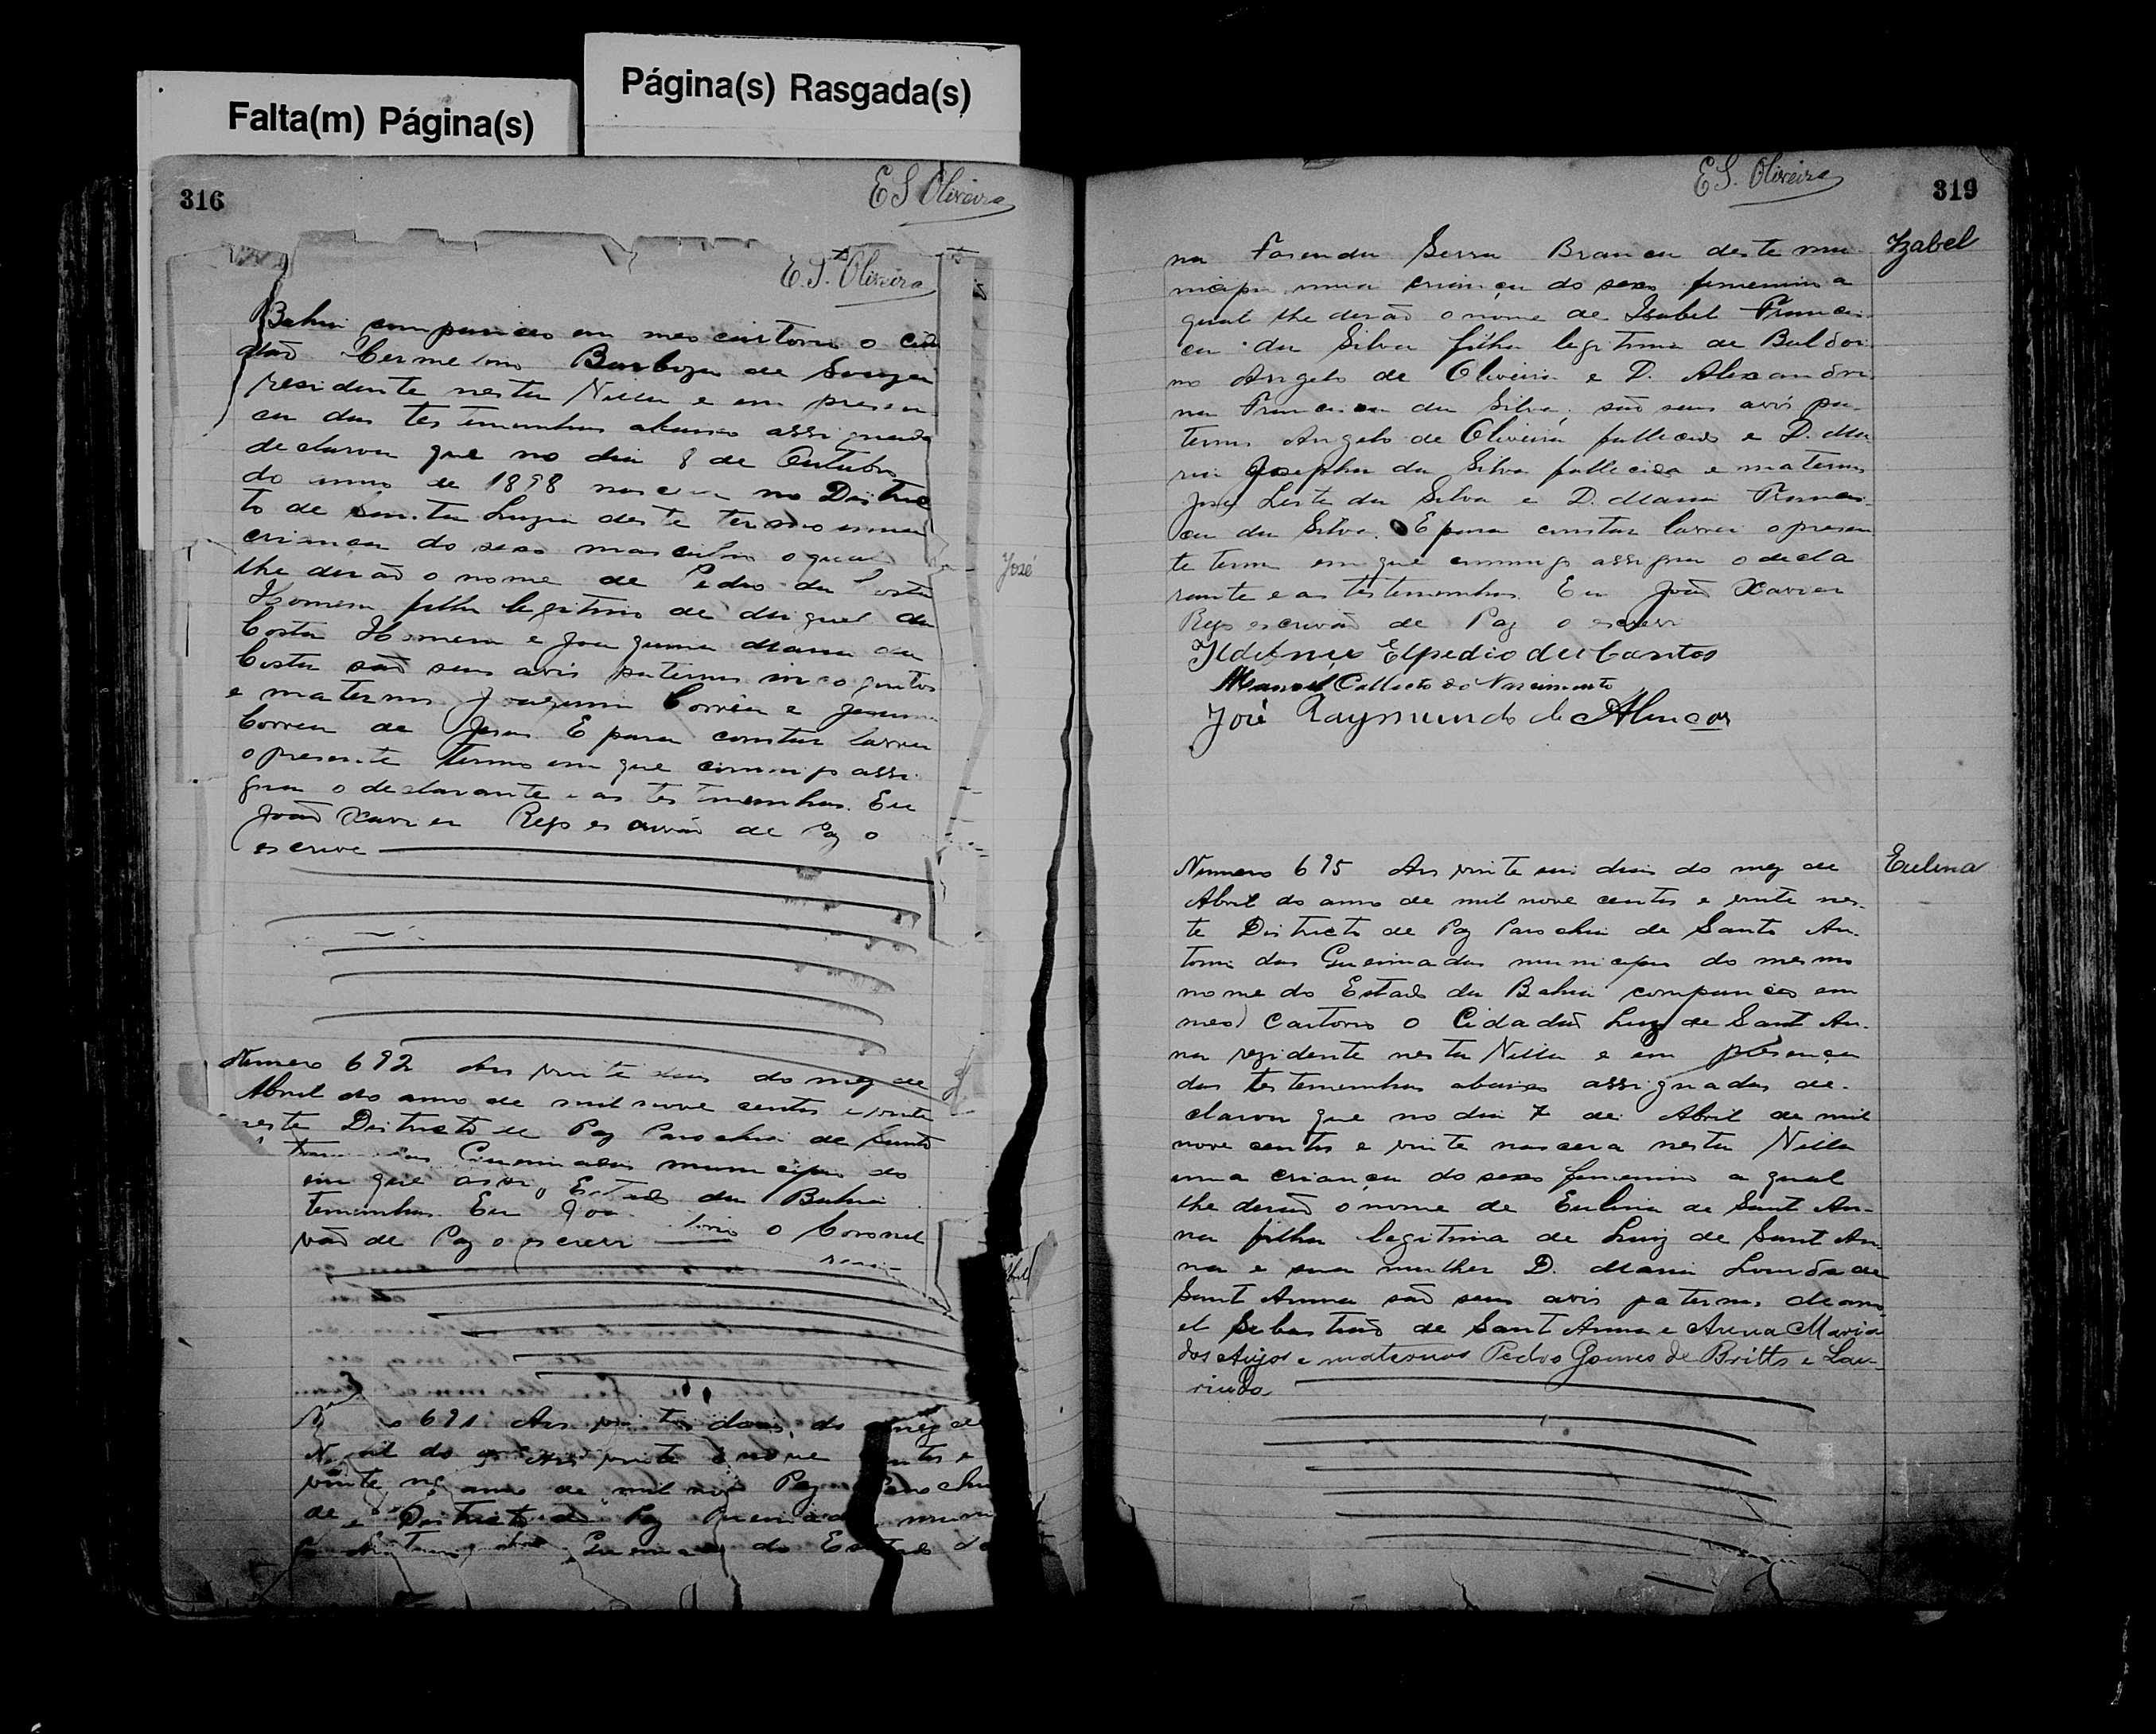 Falta(m) Página(s)
Página(s) Rasgada(s)
316
E S Oliveira
E. S. Oliveira
Bahia compareceo em meo cartorio o cida
dão Barboza de Souza
residente nesta Villa e em presen
ca das testemunhas abaixo assignada
declarou que no dia 8 de Outubro
do anno de 1898 nasceu no Distric
to de Santa Luzia deste termo uma
criança do sexo masculino o qual
lhe derão o nome de Pedro da Costa
Homem filho legitimo de Miguel da
Costa Homem e Joaquina Maria da
Costa são seus avós paternos incognitos
e maternos Joaquim Corrêa e
Correa de Jesus E para constar lavrei
o presente termo em que commigo assi
gna o declarante e as testemunhas. Eu
João Xavier Rego escrivão de Paz o
escrevi
José
Numero 692 Aos vinte dias do mez de
Abril do anno de mil nove centos e vinte
neste Districto de Paz Parochia de Santo
Queimadas municipio do
em que assig Estado da Bahia
temunhas Eu Joa o Coronel
vão de Paz o escrevi
691 Aos vinte dois do mez de
do vinte nove centos e
vinte ne anno de mil nov Paz Parochia
de Districto de Paz Queimada muni
Queimadas do Estado da
E S. Oliveira
319
Izabel
na Fasenda Serra Branca deste mu
nicipio uma criança do sexo femenino a
qual lhe derão o nome de Isabel Francis
ca da Silva filha legitima de Baldoi
no Angelo de Oliveira e D. Alexandri
na Francisca da Silva. são seus avós pa-
ternos Angelo de Oliveira fallecido e D. Ma
ria Josepha da Silva fallecida e maternos
José Leite da Silva e D. Maria Francis
ca da Silva. E para constar lavrei o presen
te termo em que commigo assigna o decla
rante e as testemunhas Eu João Xavier
Rego escrivão de Paz o escrevi
Elpedio dos Santos
Manoel Callisto do Nascimento
José Raymundo de Alencar
Eulina
Numero 695 Aos vinte seis dias do mez de
Abril do anno de mil nove centos e vinte nes-
te Districto de Paz Parochia de Santo An-
tonio das Queimadas municipio do mesmo
nome do Estado da Bahia compareceo em
meo Cartorio o Cidadão Luiz de Sant An-
na rezidente nesta Villa e em presença
das testemunhas abaixo assignadas de-
clarou que no dia 7 de Abril de mil
nove centos e vinte nascera nesta Villa
uma criança do sexo femenino a qual
lhe derão o nome de Eulina de Sant An-
na filha legitima de Luiz de Sant An-
na e sua mulher D. Maria de
Sant Anna são seus avós paternos Mano
el Sebastião de Sant Anna e Anna Maria
dos Anjos e maternos Pedro Gomes de Britto e Lau-
rinda